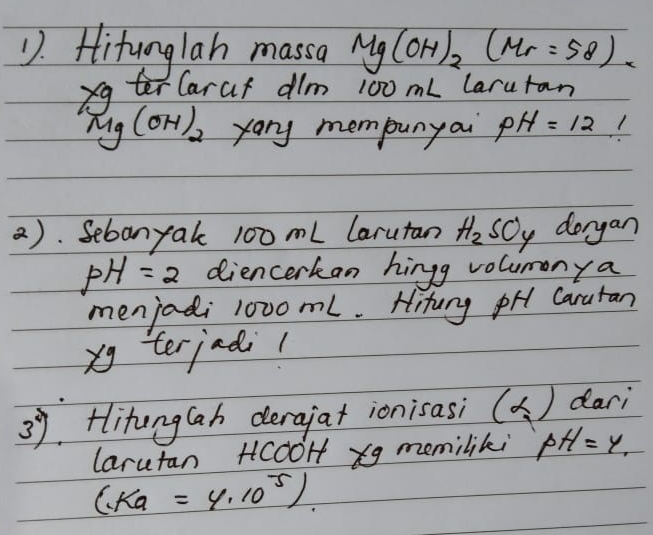 1). Hitunglah massa Mg(OH)₂ (Mr = 58).
yg terlarut dlm 100 mL larutan
Mg(OH)₂ yang mempunyai pH = 12 !
2). Sebanyak 100 mL larutan H₂SO₄ dengan
pH = 2 diencerkan hingg volumenya
menjadi 1000 mL. Hitung pH larutan
yg terjadi !
3). Hitunglah derajat ionisasi (α) dari
larutan HCOOH yg memiliki pH = 4.
(Ka = 4.10⁻⁵).